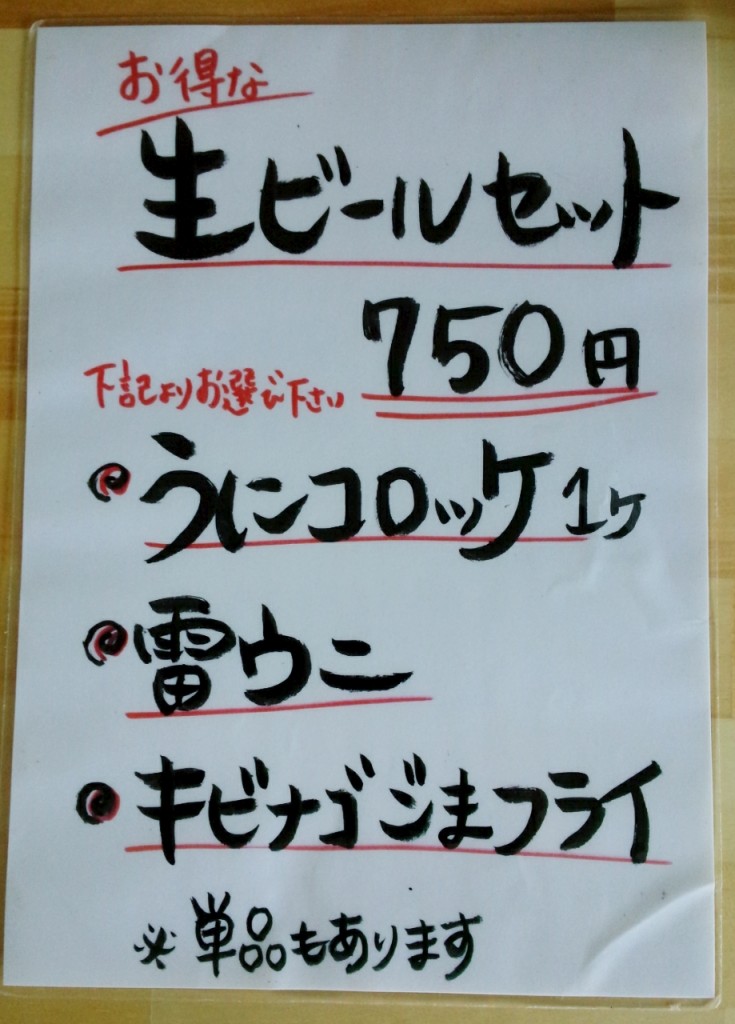 お得な
生ビールセット
750円
下記よりお選び下さい
うにコロッケ 1ヶ
雷ウニ
キビナゴごまフライ
※単品もあります